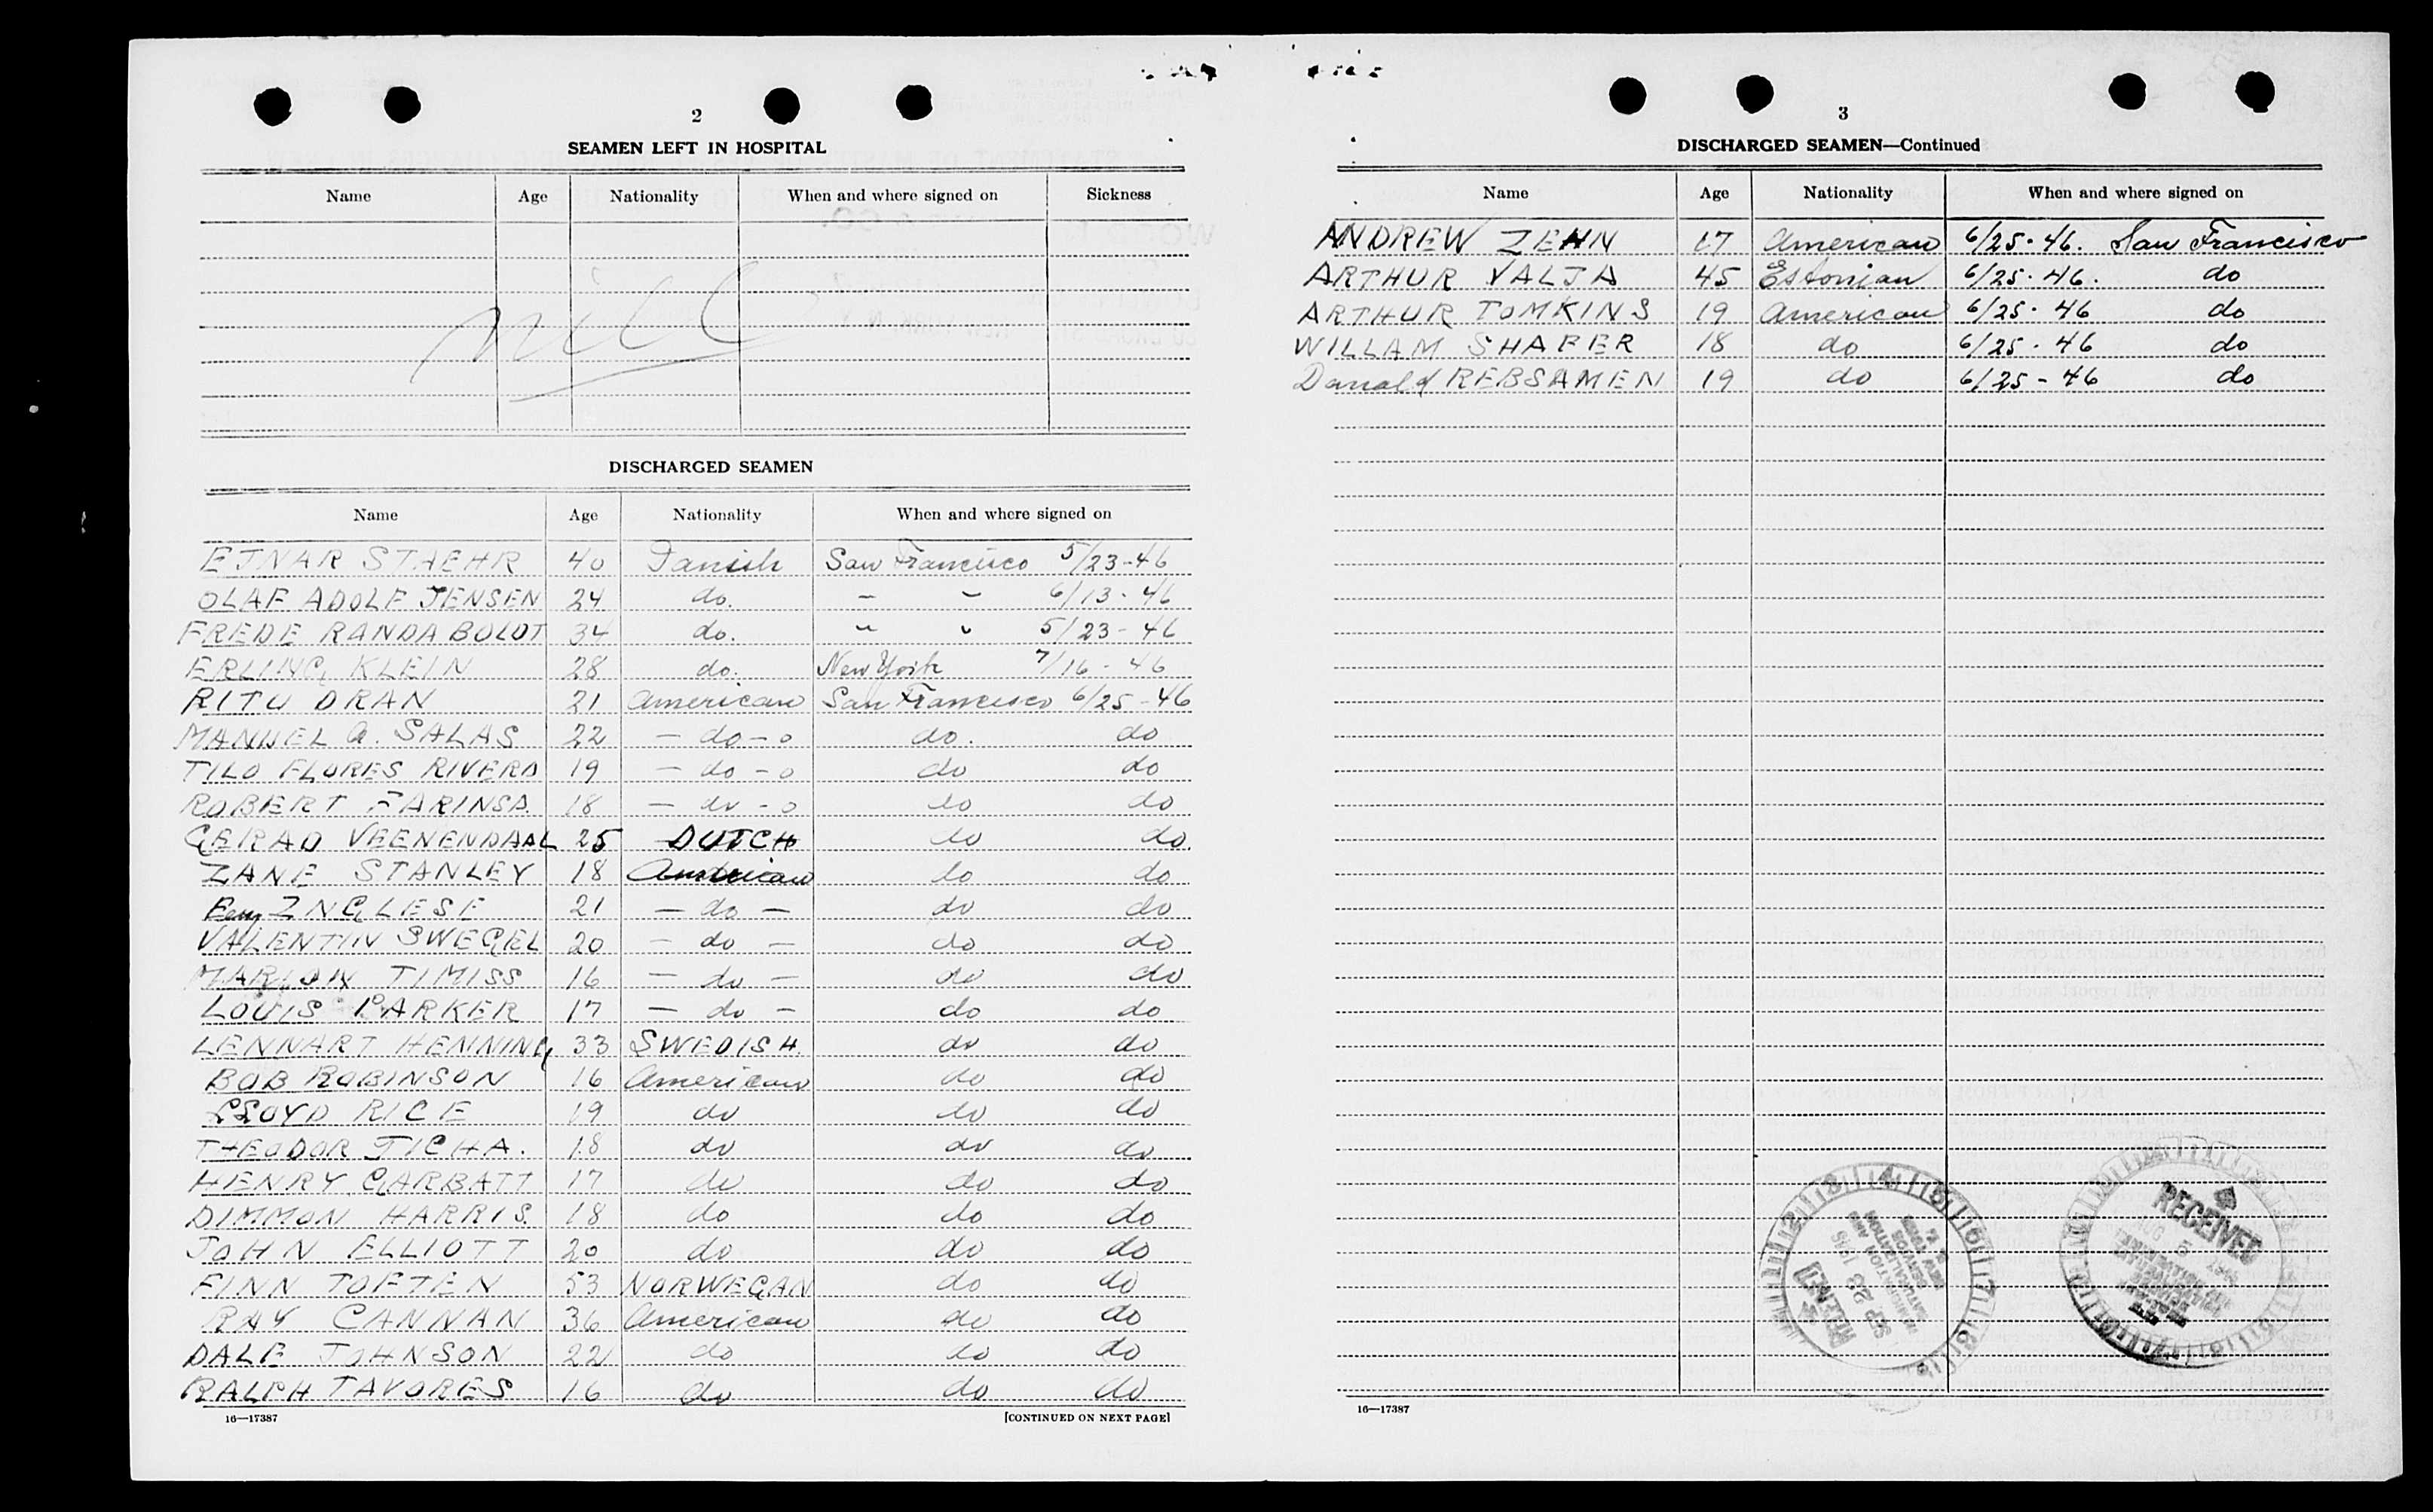 2
SEAMEN LEFT IN HOSPITAL
Name Age Nationality When and where signed on Sickness
nill
DISCHARGED SEAMEN
Name Age Nationality When and where signed on
EJNAR STAEHR 40 Danish San Francisco 5/23-46
OLAF ADOLF JENSEN 24 do. " " 6/13-46
FREDE RANDA BOLDT 34 do. " " 5/23-46
ERLING KLEIN 28 do. New York 7/16-46
RITO DRAN 21 American San Francisco 6/25-46
MANUEL A. SALAS 22 - do - o do. do
TILO FLORES RIVERA 19 - do - o do do
ROBERT FARINSA. 18 - do - o do do
GERAD VEENENDAAL 25 DUTCH do do.
ZANE STANLEY 18 American do do
INGLESE 21 - do - do do
VALENTIN SWEGEL 20 - do - do do
MARION TIMISS 16 - do - do do
LOUIS PARKER 17 - do - do do
LENNART HENNING 33 SWEDISH. do do
BOB ROBINSON 16 American do do
LLOYD RICE 19 do do do
THEODOR JICHA. 18 do do do
HENRY GARBATT 17 do do do
DIMMON HARRIS. 18 do do do
JOHN ELLIOTT 20 do do do
FINN TOFTEN 53 NORWEGAN do do
RAY CANNAN 36 American do do
DALE JOHNSON 22 do do do
RALPH TAVORES 16 do do do
16—17387 [CONTINUED ON NEXT PAGE]
3
DISCHARGED SEAMEN—Continued
Name Age Nationality When and where signed on
ANDREW ZEHN 17 American 6/25-46. San Francisco
ARTHUR VALJA 45 Estonian 6/25-46. do
ARTHUR TOMKINS 19 American 6/25-46 do
WILLAM SHAFER 18 do 6/25-46 do
Donald REBSAMEN 19 do 6/25-46 do
RECEIVED
16—17387